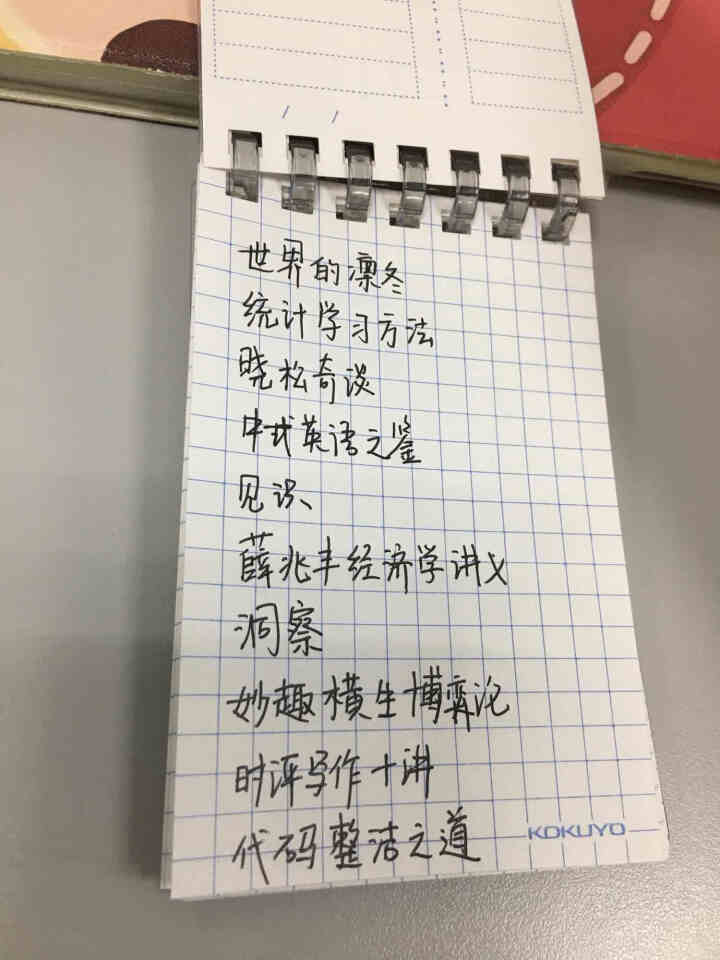 世界的凛冬
统计学习方法
晓松奇谈
中式英语之鉴
见识、
薛兆丰经济学讲义
洞察
妙趣横生博弈论
时评写作十讲
代码整洁之道
KOKUYO